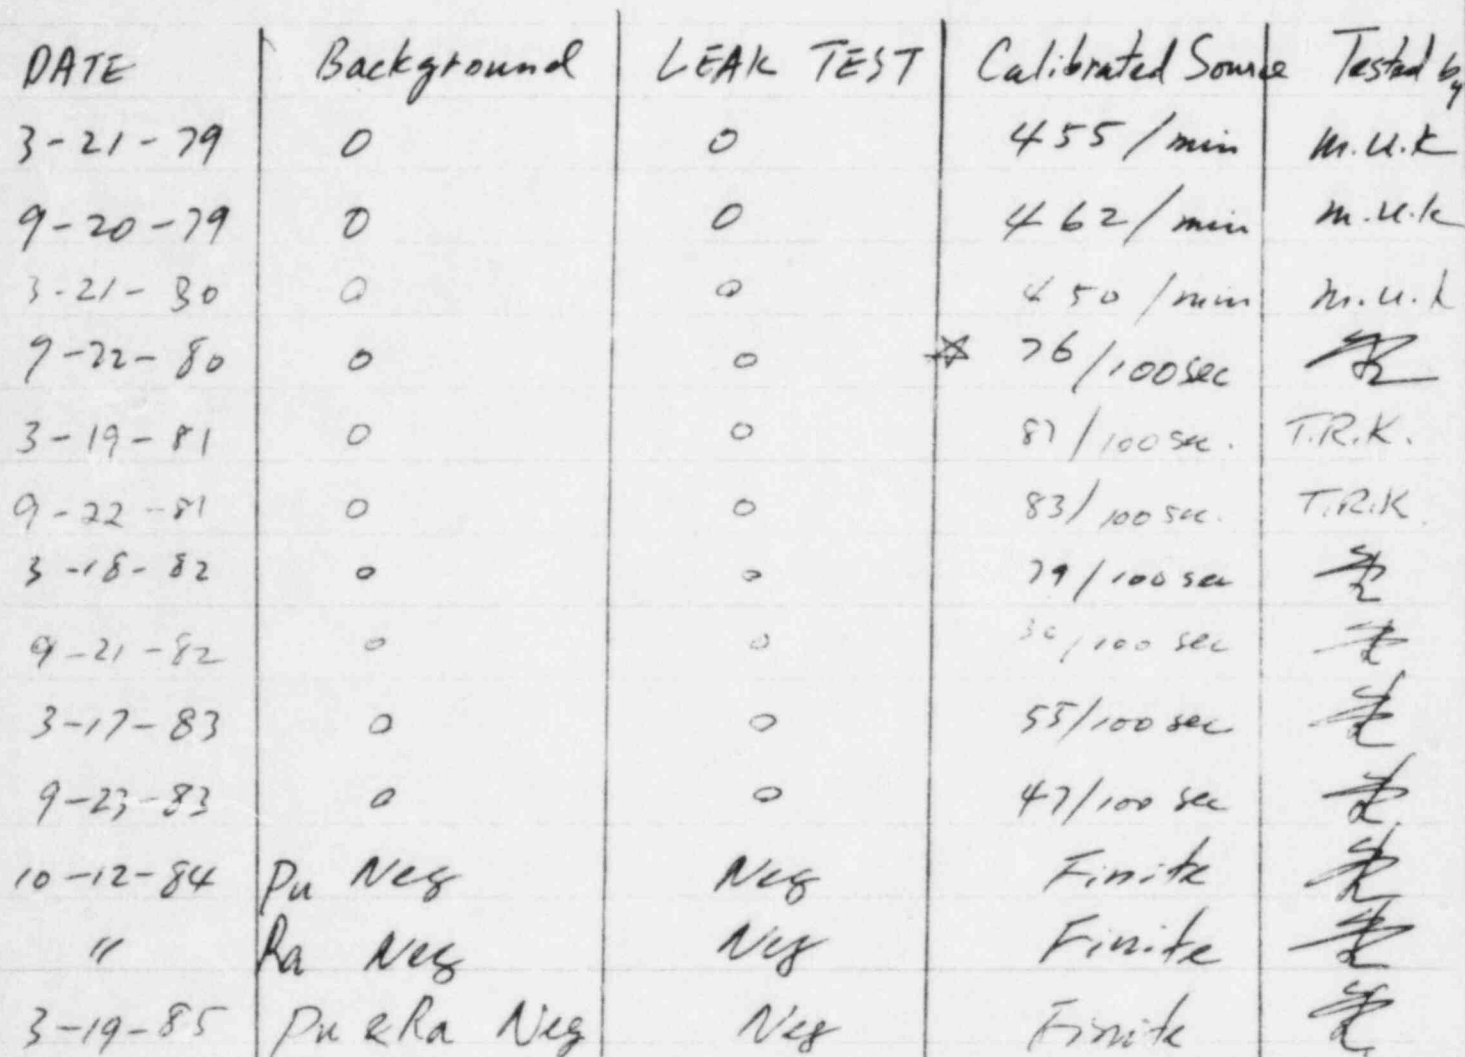 DATE Background LEAK TEST Calibrated Source Tested by
3-21-79 0 0 455/min M.U.K
9-20-79 0 0 462/min M.U.K
3-21-80 0 0 450/min M.U.K
9-22-80 0 0 ☆ 76/100 sec
3-19-81 0 0 87/100 sec. T.R.K.
9-22-81 0 0 83/100 sec. T.R.K.
3-18-82 0 0 79/100 sec
9-21-82 0 0 /100 sec
3-17-83 0 0 55/100 sec
9-23-83 0 0 47/100 sec
10-12-84 Pu Neg Neg Finite
" Ra Neg Neg Finite
3-19-85 Pu & Ra Neg Neg Finite